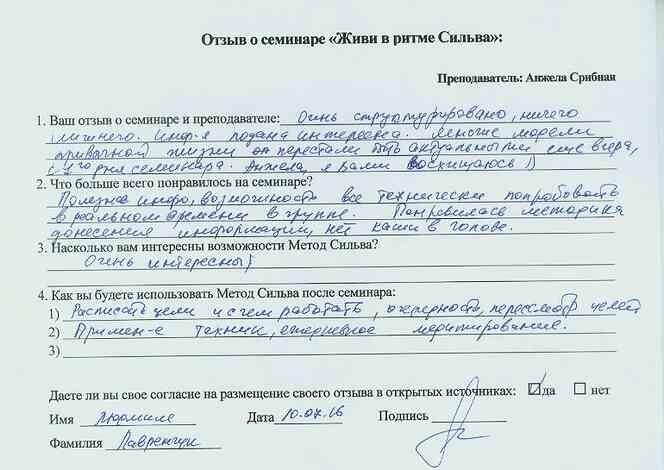 Отзыв о семинаре «Живи в ритме Сильва»:
Преподаватель: Анжела Срибная
1. Ваш отзыв о семинаре и преподавателе: Очень структурировано, ничего
лишнего. Инф-я подана интересена. Многие модели
привычной жизни перестали быть актуальными еще вчера,
дня семинара. Анжела, я Вами восхищаюсь!)
2. Что больше всего понравилось на семинаре?
Полезная инфо, возможность все технически попробовать
в реальном времени в группе. Понравилась методика
донесения информации, нет каши в голове.
3. Насколько вам интересны возможности Метод Сильва?
Очень интересны!
4. Как вы будете использовать Метод Сильва после семинара:
1) Расписать цели и с чем работать, очередность, пересмотр целей
2) Примен-е техник, ежедневное медитирование.
3)
Даете ли вы свое согласие на размещение своего отзыва в открытых источниках: ☑ да ☐ нет
Имя Людмила Дата 10.07.16 Подпись
Фамилия Лавренчук